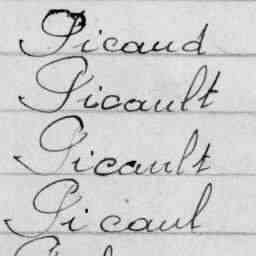 Picaud
Picault
Picault
Picaul